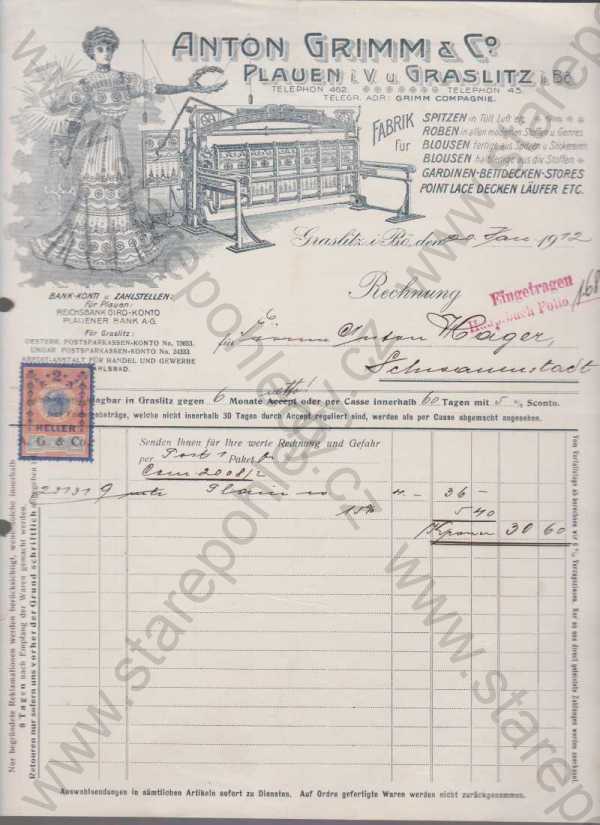 ANTON GRIMM & Co.
PLAUEN i.V. u. GRASLITZ i. Bö.
TELEPHON 462. TELEPHON 45.
TELEGR. ADR: GRIMM COMPAGNIE.
FABRIK für
SPITZEN in Tüll Luft etc.
ROBEN in allen modernen Stoffen u. Genres
BLOUSEN fertige aus Spitzen u. Stickereien
BLOUSEN halbfertige aus div. Stoffen
GARDINEN-BETTDECKEN-STORES
POINT LACE DECKEN LÄUFER ETC.
Graslitz i. Bö., den 20. Jan. 1912
Rechnung
Eingetragen
Hauptbuch Folio 168
BANK-KONTI u. ZAHLSTELLEN:
Für Plauen:
REICHSBANK GIRO-KONTO
PLAUENER BANK A-G.
Für Graslitz:
OESTERR. POSTSPARKASSEN-KONTO No.
UNGAR. POSTSPARKASSEN-KONTO No.
KREDIT-ANSTALT FÜR HANDEL UND GEWERBE
KARLSBAD.
für Anton Hager,
Schwanenstadt
2
HELLER
A. G. & Co.
gbar in Graslitz gegen 6 Monate Accept oder per Casse innerhalb 60 Tagen mit 5 % Sconto.
beträge, welche nicht innerhalb 30 Tagen durch Accept reguliert sind, werden als per Casse abgemacht angesehen.
Senden Ihnen für Ihre werte Rechnung und Gefahr
per Post 1 Paket
Com 2008/2
23131 9 4.– 36 –
15% 5 40
Kronen 30 60
Nur begründete Reklamationen werden berücksichtigt, wenn solche innerhalb
8 Tagen nach Empfang der Waren gemacht werden.
Retouren nur sofern uns vorher der Grund schriftlich
Vom Verfalltage ab berechnen wir 6 % Verzugszinsen. Nur an uns direkt geleistete Zahlungen werden anerkannt
Auswahlsendungen in sämtlichen Artikeln sofort zu Diensten. Auf Ordre gefertigte Waren werden nicht zurückgenommen.
www.starepohledy.cz